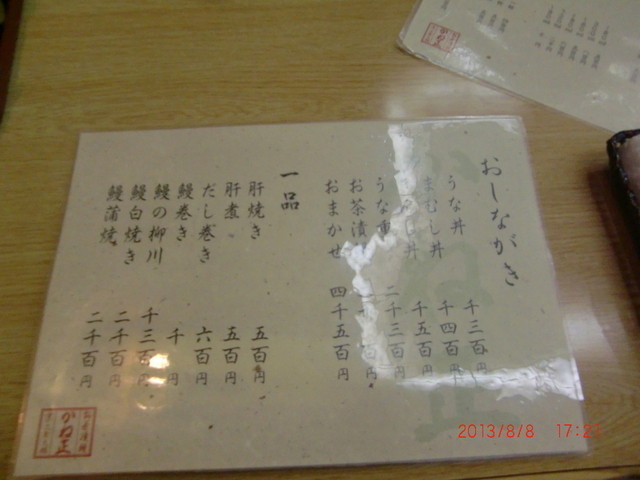 おしながき
うな丼 千三百円
まむし丼 千四百円
し丼 千五百円
うな重 二千三百円
お茶漬 百円
おまかせ 四千五百円
一品
肝焼き 五百円
肝煮 五百円
だし巻き 六百円
鰻巻き 千円
鰻の柳川 千三百円
鰻白焼き 二千百円
鰻蒲焼 二千百円
かね正
2013/8/8 17:2